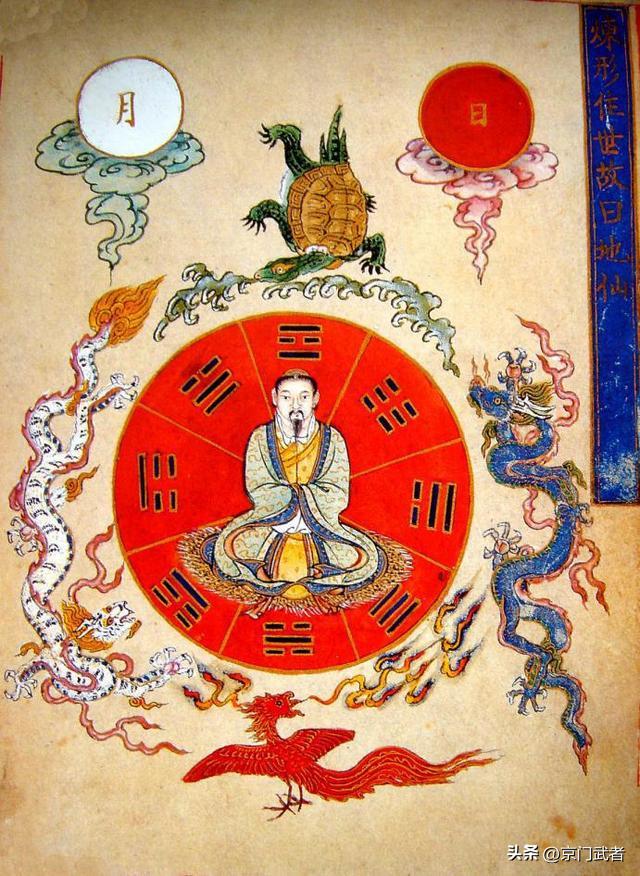 煉形住世故曰地仙
月
日
头条 @京门武者